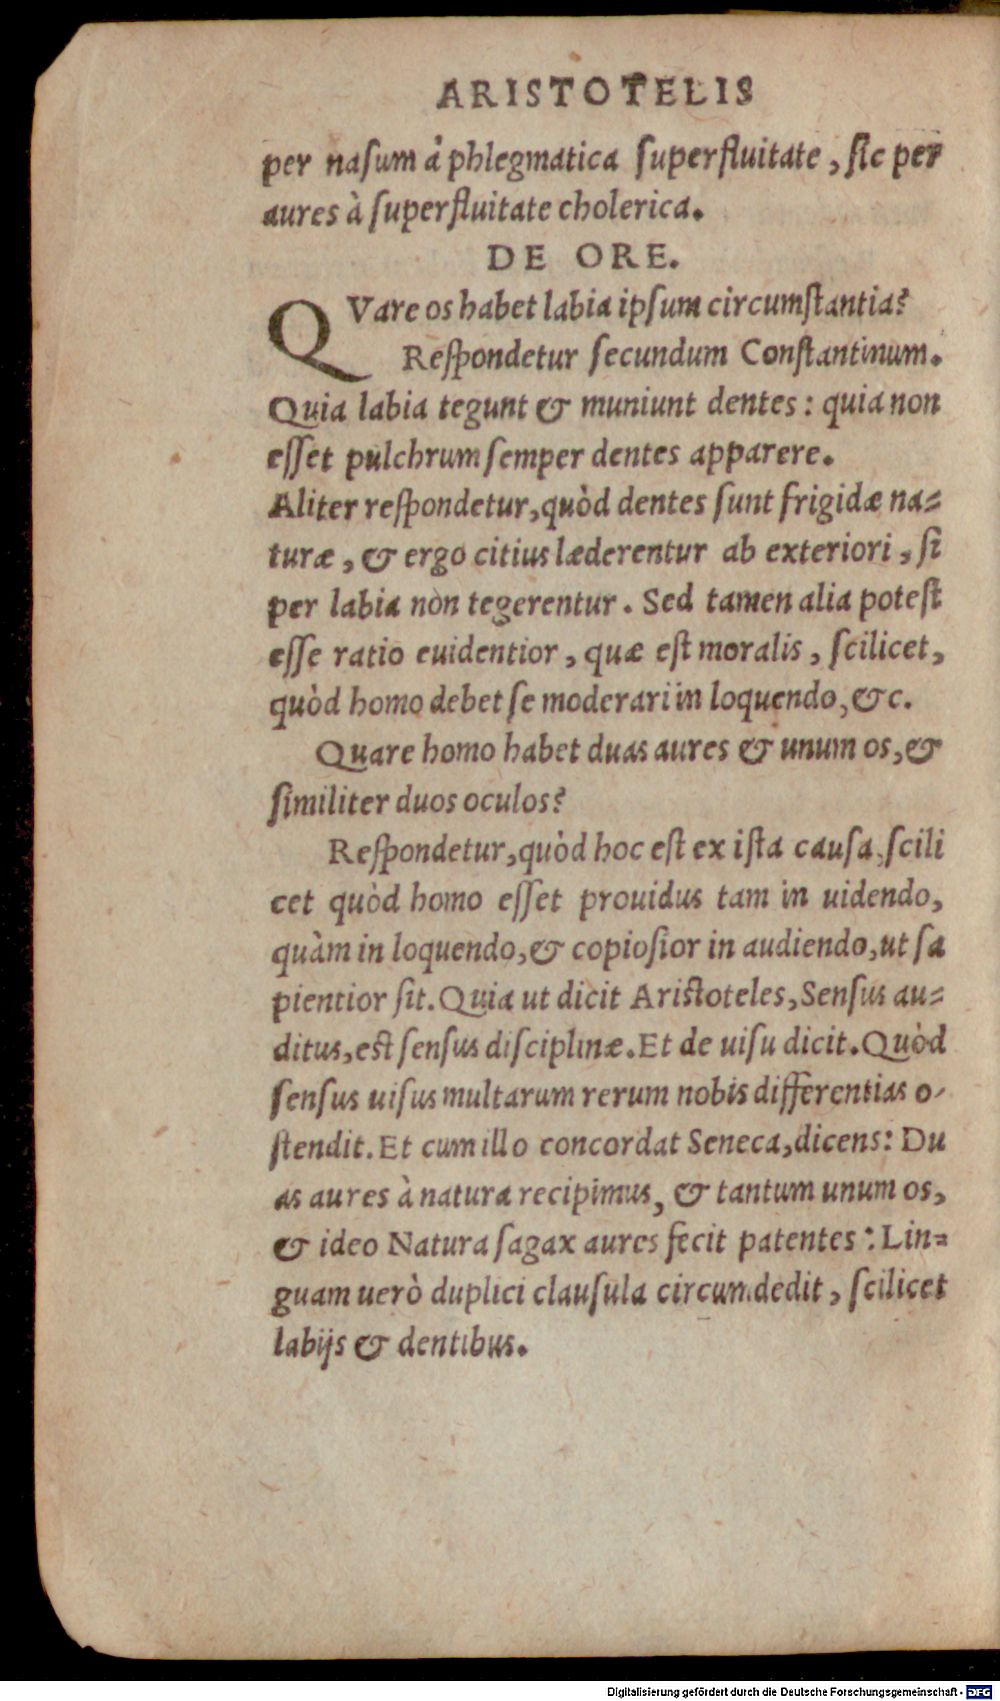 ARISTOTELIS
per nasum à phlegmatica superfluitate, sic per
aures à superfluitate cholerica.
DE ORE.
QVare os habet labia ipsum circumstantia?
Respondetur secundum Constantinum.
Quia labia tegunt & muniunt dentes: quia non
esset pulchrum semper dentes apparere.
Aliter respondetur, quòd dentes sunt frigidæ na-
turæ, & ergo citius læderentur ab exteriori, si
per labia non tegerentur. Sed tamen alia potest
esse ratio euidentior, quæ est moralis, scilicet,
quòd homo debet se moderari in loquendo, &c.
Quare homo habet duas aures & unum os, &
similiter duos oculos?
Respondetur, quòd hoc est ex ista causa, scili
cet quòd homo esset prouidus tam in uidendo,
quàm in loquendo, & copiosior in audiendo, ut sa
pientior sit. Quia ut dicit Aristoteles, Sensus au-
ditus, est sensus disciplinæ. Et de uisu dicit. Quòd
sensus uisus multarum rerum nobis differentias o-
stendit. Et cum illo concordat Seneca, dicens: Du
as aures à natura recipimus, & tantum unum os,
& ideo Natura sagax aures fecit patentes: Lin-
guam uerò duplici clausula circumdedit, scilicet
labijs & dentibus.
Digitalisierung gefördert durch die Deutsche Forschungsgemeinschaft - DFG